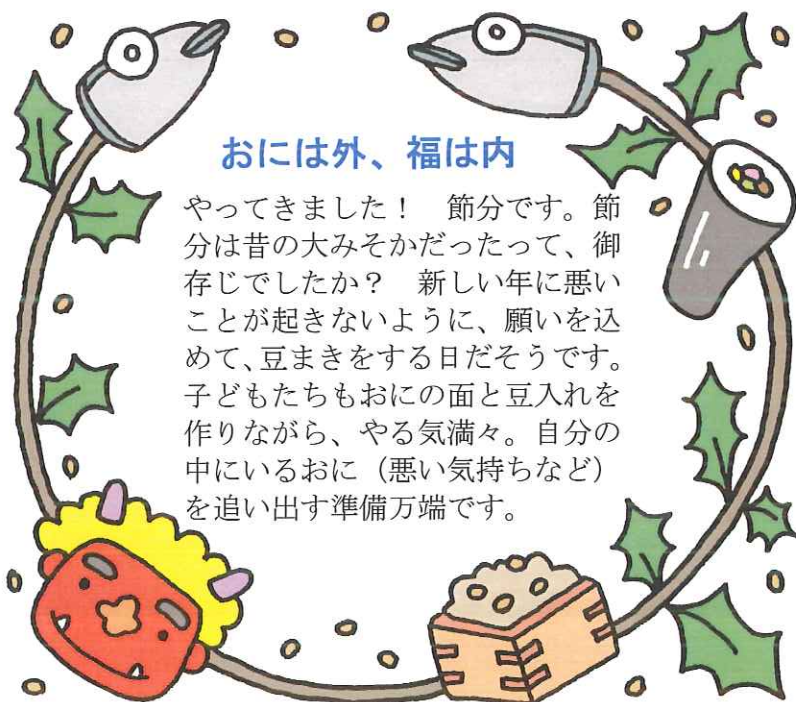 おには外、福は内
やってきました！　節分です。節
分は昔の大みそかだったって、御
存じでしたか？　新しい年に悪い
ことが起きないように、願いを込
めて、豆まきをする日だそうです。
子どもたちもおにの面と豆入れを
作りながら、やる気満々。自分の
中にいるおに（悪い気持ちなど）
を追い出す準備万端です。